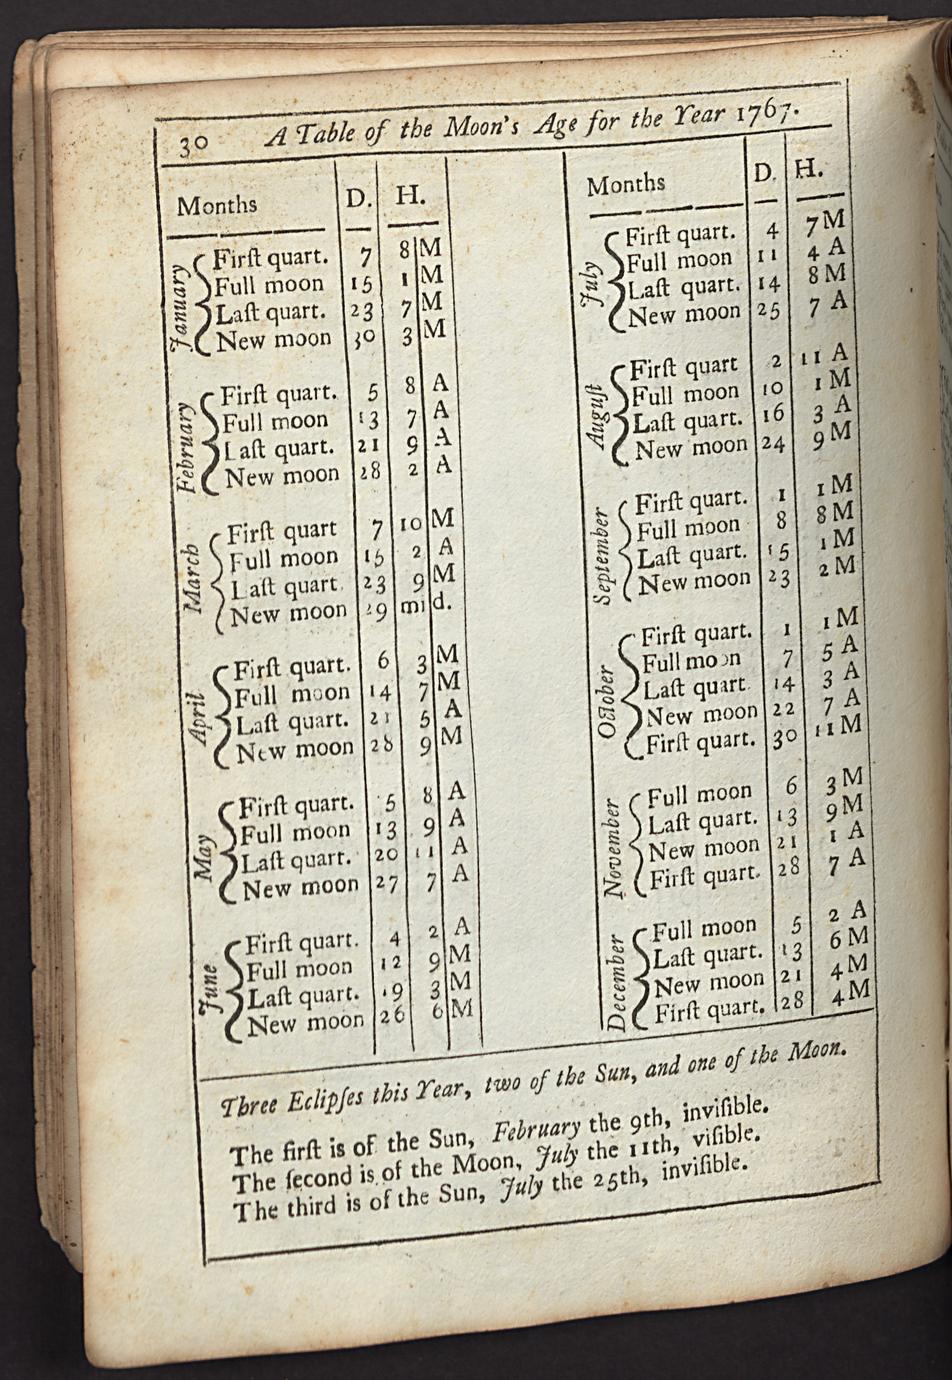 30 A Table of the Moon's Age for the Year 1767.
Months D. H.
January
Firſt quart. 7 8 M
Full moon 15 1 M
Laſt quart. 23 7 M
New moon 30 3 M
February
Firſt quart. 5 8 A
Full moon 13 7 A
Laſt quart. 21 9 A
New moon 28 2 A
March
Firſt quart 7 10 M
Full moon 15 2 A
Laſt quart. 23 9 M
New moon 29 mid.
April
Firſt quart. 6 3 M
Full moon 14 7 M
Laſt quart. 21 5 A
New moon 28 9 M
May
Firſt quart. 5 8 A
Full moon 13 9 A
Laſt quart. 20 11 A
New moon 27 7 A
June
Firſt quart. 4 2 A
Full moon 12 9 M
Laſt quart. 19 3 M
New moon 26 6 M
Months D. H.
July
Firſt quart. 4 7 M
Full moon 11 4 A
Laſt quart. 14 8 M
New moon 25 7 A
Auguſt
Firſt quart 2 11 A
Full moon 10 1 M
Laſt quart. 16 3 A
New moon 24 9 M
September
Firſt quart. 1 1 M
Full moon 8 8 M
Laſt quart. 15 1 M
New moon 23 2 M
October
Firſt quart. 1 1 M
Full moon 7 5 A
Laſt quart. 14 3 A
New moon 22 7 A
Firſt quart. 30 11 M
November
Full moon 6 3 M
Laſt quart. 13 9 M
New moon 21 1 A
Firſt quart. 28 7 A
December
Full moon 5 2 A
Laſt quart. 13 6 M
New moon 21 4 M
Firſt quart. 28 4 M
Three Eclipſes this Year, two of the Sun, and one of the Moon.
The firſt is of the Sun, February the 9th, inviſible.
The ſecond is of the Moon, July the 11th, viſible.
The third is of the Sun, July the 25th, inviſible.